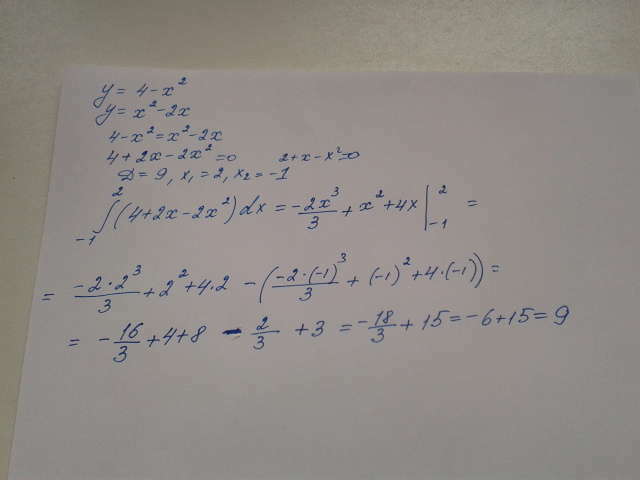 y = 4 - x²
y = x² - 2x
4 - x² = x² - 2x
4 + 2x - 2x² = 0 2 + x - x² = 0
D = 9, x₁ = 2, x₂ = -1
∫₋₁² (4 + 2x - 2x²) dx = -2x³/3 + x² + 4x |₋₁² =
= -2·2³/3 + 2² + 4·2 - (-2·(-1)³/3 + (-1)² + 4·(-1)) =
= -16/3 + 4 + 8 - 2/3 + 3 = -18/3 + 15 = -6 + 15 = 9